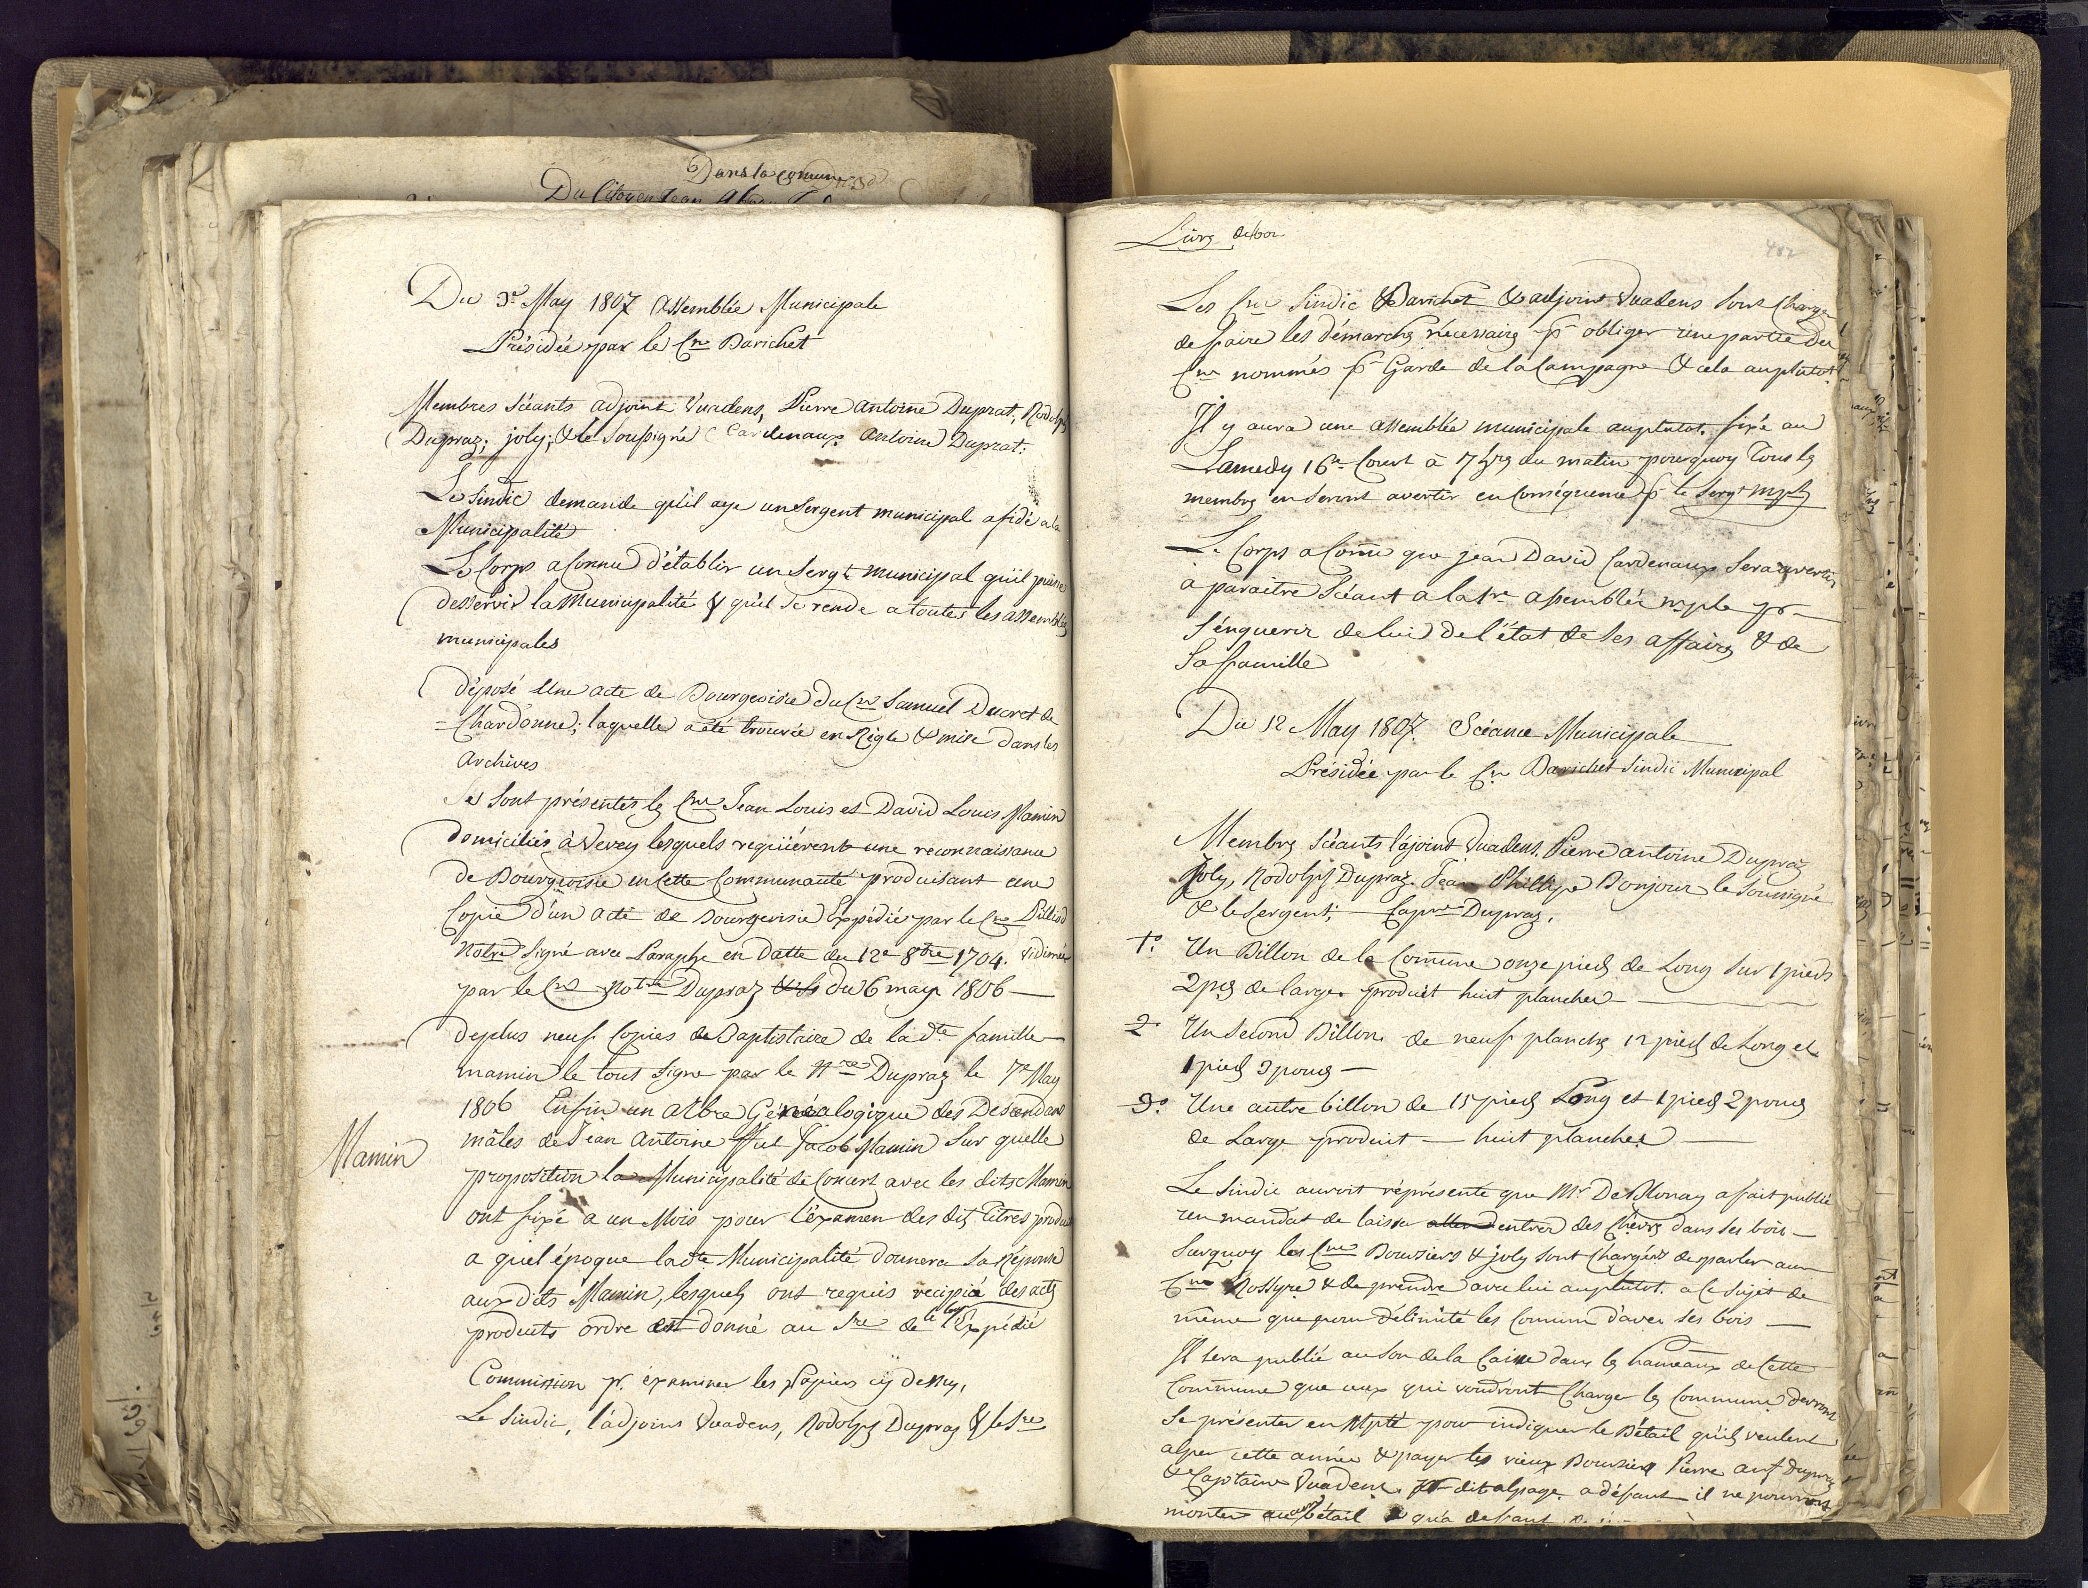 Dans la Comune
Du Citoyen Jean
Du 3e May 1807 Assemblée Municipale
Présidée par le Cn Barichet
Membres Séants adjoint Vuadens, Pierre Antoine Duprat, Rodolph
Dupraz; joly; & le Soussigné Cardenaux Antoine Duprat.
Le Sindic demande qu'il aye un Sergent municipal afidé a la
Municipalité
Le Corps a Connu d'établir un Sergt municipal qu'il puisse
desservir la Municipalité & qu'il se rende a toutes les assemblées
municipales
déposé Une acte de Bourgeoisie du Cn Samuel Ducret de
Chardonne; laquelle a été trouvée en Règle & mise dans les
Archives
Se Sont présentés les Cns Jean Louis et David Louis Mamin
domiciliés à Vevey lesquels requièrent une reconnaissance
de Bourgeoisie en Cette Communauté produisant une
Copie d'un acte de Bourgeoisie Expédié par le Cn Pilliod
Notre Signé avec Paraphe en Datte du 12e 8bre 1704. vidimée
par le Cn Notre Dupraz du 6 may 1806 —
deplus neuf Copies de Baptistaire de la dte famille
mamin le tout Signé par le Nre Dupraz le 7e May
1806 Enfin un Albre Généalogique des Descendans
Mamin
mâles de Jean Antoine ffeu Jacob Mamin Sur quelle
proposition la Municipalité de Concert avec les dits Mamin
ont fixé a un Mois pour l'éxamen des dits Titres produits
a quel époque la dte Municipalité donnera Sa Réponse
aux Dits Mamin, lesquels ont requis recipicé des acts
produits ordre est donné au Sre de le leur Expédié
Commission pr. éxaminer les Papiers cy dessus,
Le Sindic, l'adjoint Vuadens, Rodolphe Dupraz & le Sre
Livre de bor
482
Les Cns Sindic Barichet & adjoint Vuadens Sont Chargé
de faire les démarches nécessaires pr obliger une partie des
Cns nommés pr Garde de la Campagne & cela auplutot
Il y aura une assemblée municipale auplutot. fixé au
Samedy 16e Court à 7 hres du matin pourquoy Tous les
membres en Seront avertir en Conséquence pr le Sergt Mpl
Le Corps a Connu que jean David Cardenaux Sera avertir
a paraitre Séant a la 1re assemblée mple pr
S'énquerir de lui de l'état de Ses affaires & de
Sa famille
Du 12 May 1807. Scéance Municipale
Présidée par le Cn Barichet Sindic Municipal
Membres Séants l'ajoint Vuadens. Pierre antoine Dupraz
Joly, Rodolph Dupraz. Jean Phillipe Bonjour le Soussigné
& le Sergent; Capne Dupraz.
1o. Un Billon de la Commune onze pieds de Long Sur 1 pieds
2 pces de large. produit huit planches —
2 Un Second Billon de neuf planches 12 pieds de Long et
1 pieds 3 pouces —
3o. Une autre billon de 15 pieds Long et 1 pieds 2 pouces
de Large produit — huit planches —
Le Sindic auroit réprésenté que Mr De Blonay a fait publié
un mandat de laisser entrer des Chèvres dans Ses bois —
Surquoy les Cns Boursiers & joly Sont Chargées de parler au
Cn Rossyre & de prendre avec lui auplutot. a Ce Sujet de
même que pour délimité les Comuns d'avec Ses bois —
Il Sera publié au Son de la Caisse dans les hameaux de Cette
Commune que ceux qui voudront Charger les Communs devront
Se présenter en Mpté pour indiquer le Bétail qu'ils veulent
alper cette année & payer les vieux Boursiers Pierre ant Dupraz
& Capitaine Vuadens dit alpage. a défaut il ne pourront
monter aucun bétail qu'a defaut